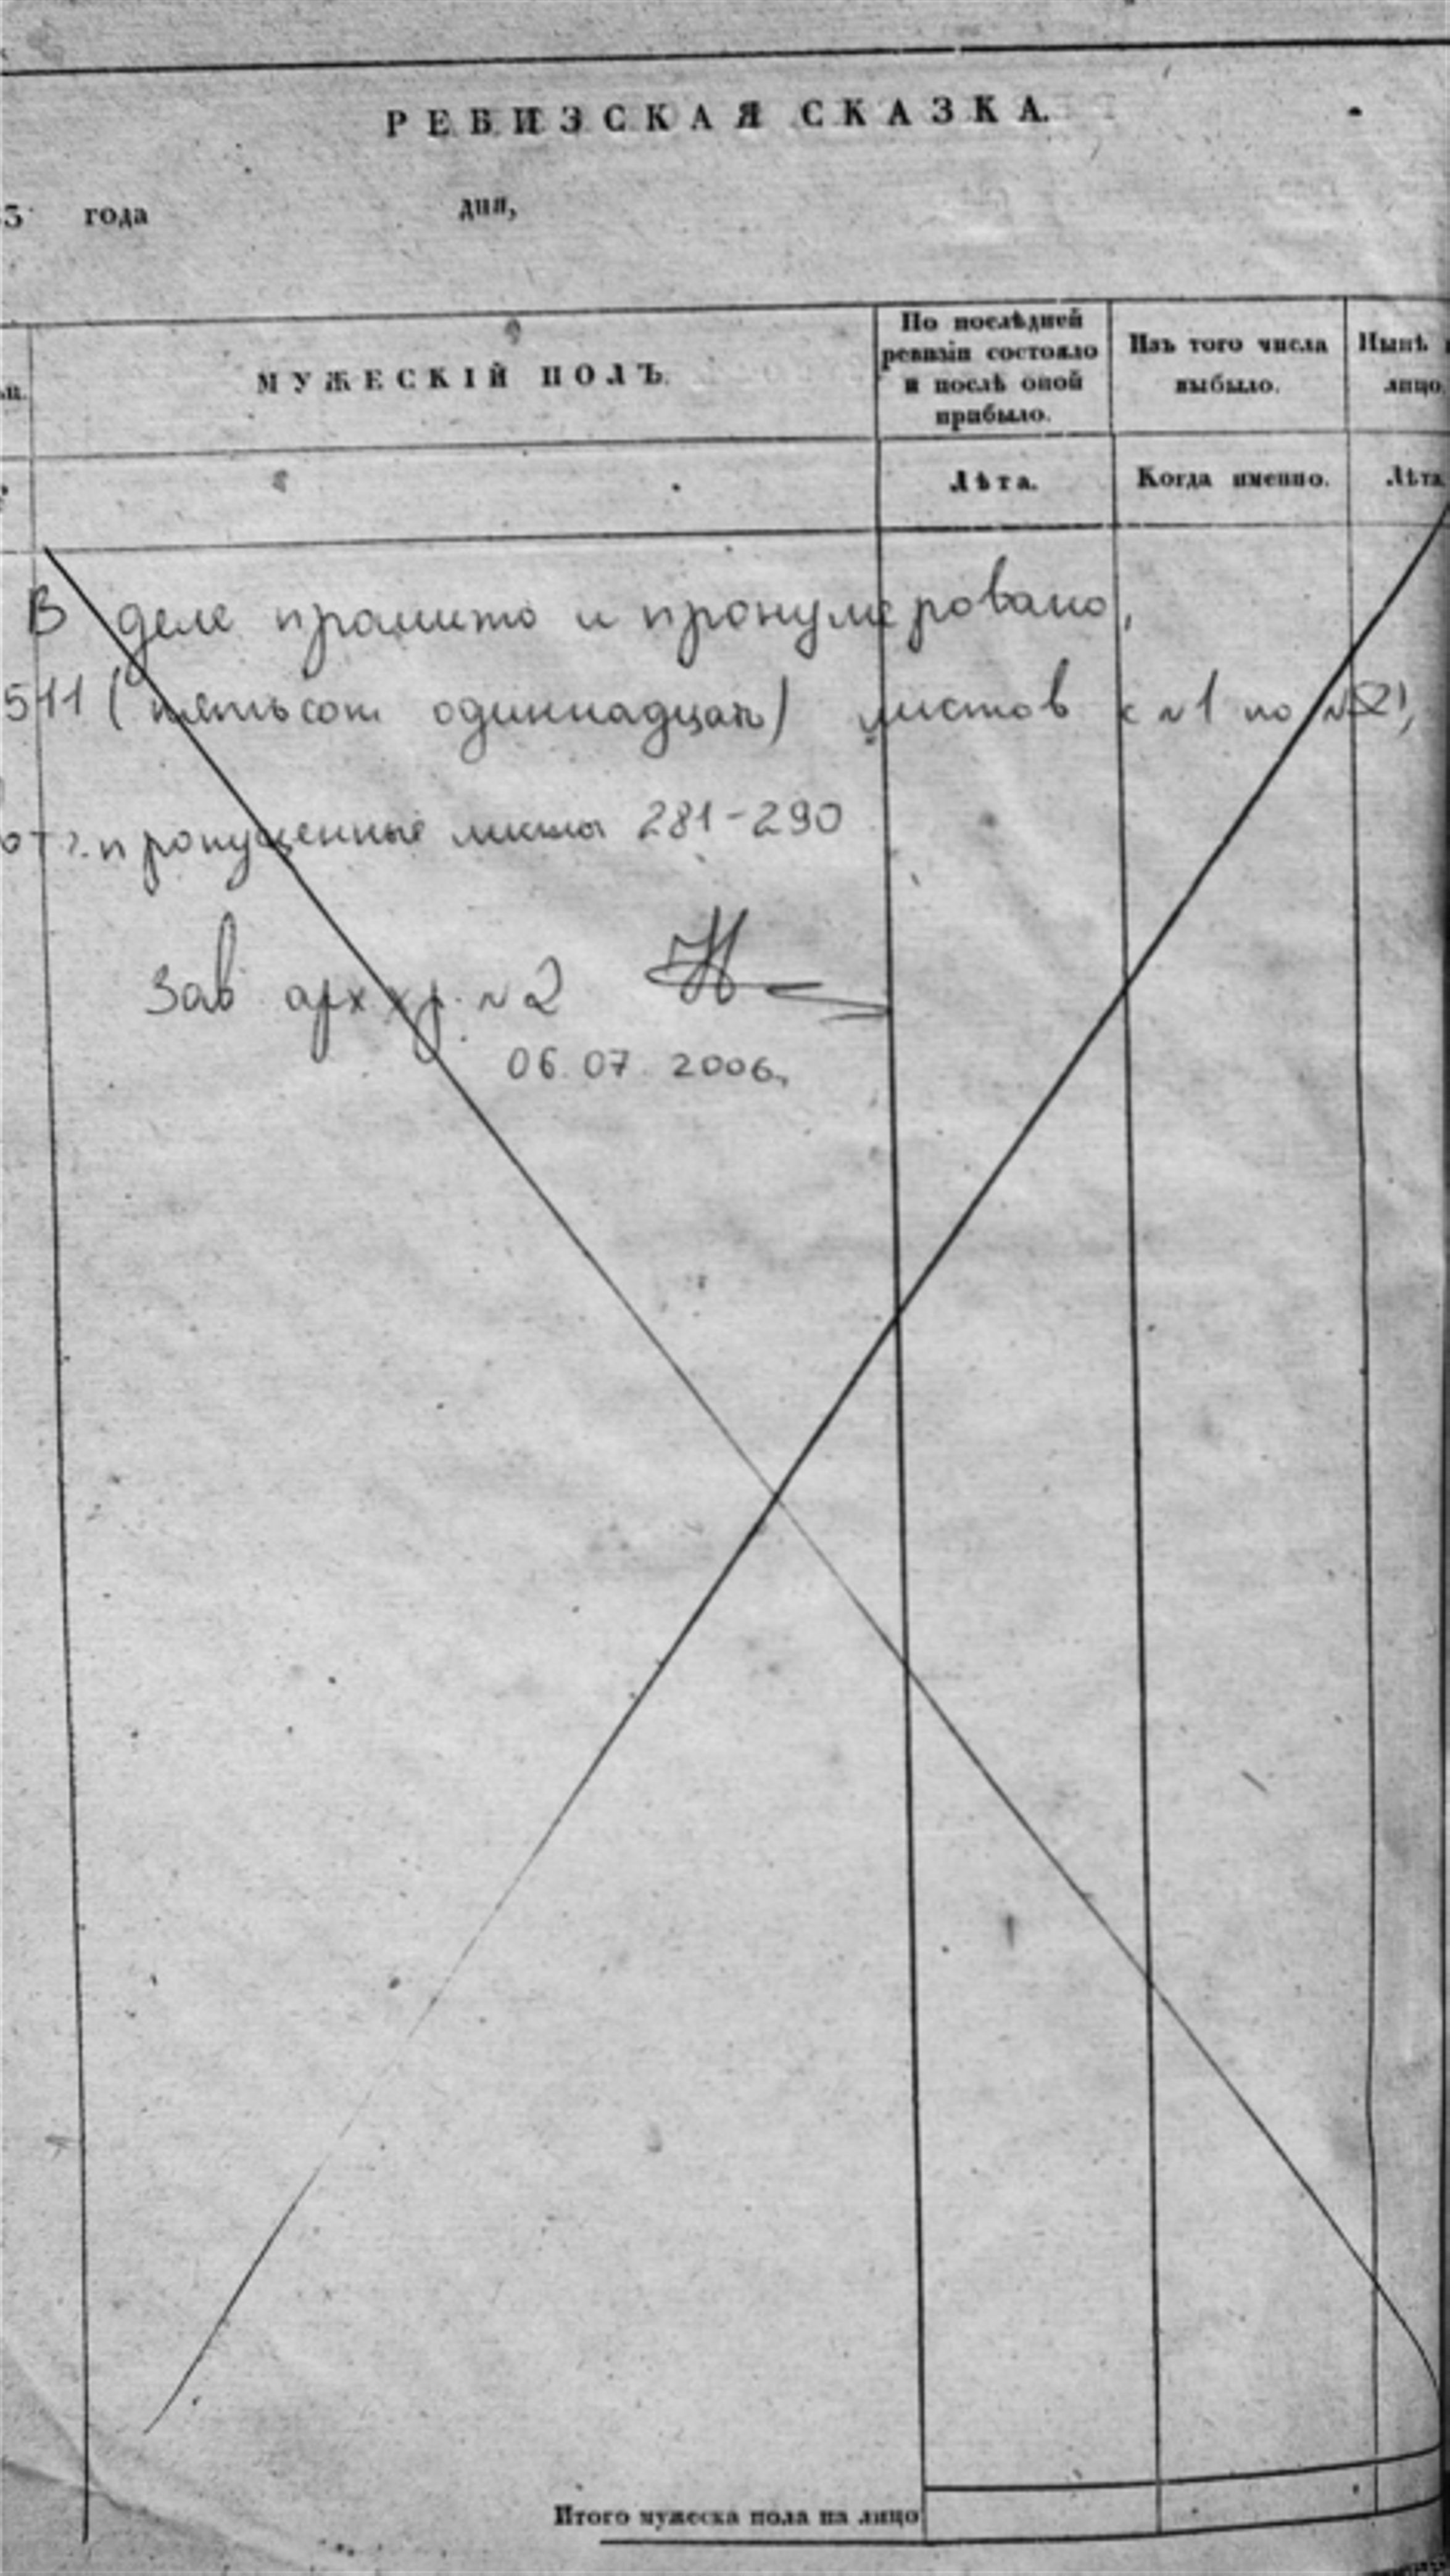 РЕВИЗСКАЯ СКАЗКА.
года дня,
МУЖЕСКІЙ ПОЛЪ.
По послѣдней
ревизіи состояло
и послѣ оной
прибыло.
Изъ того числа
выбыло.
Нынѣ
лицо
Лѣта.
Когда именно.
Лѣта
В деле прошито и пронумеровано,
511 (пятьсот одиннадцать) листов с №1 по
пропущенные листы 281-290
Зав арх хр. №2
06.07.2006г.
Итого мужеска пола на лицо